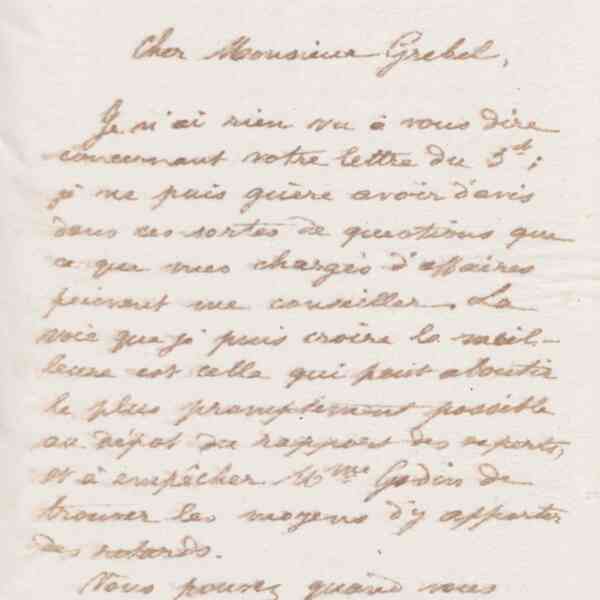 Cher Monsieur Grebel,
Je n'ai rien vu à vous dire
concernant votre lettre du 3 ct;
je ne puis guère avoir d'avis
dans ces sortes de questions que
ce que mes chargés d'affaires
peuvent me conseiller. La
voie que je puis croire la meil-
leure est celle qui peut aboutir
le plus promptement possible
au dépôt du rapport des experts,
et à empêcher Mme Godin de
trouver les moyens d'y apporter
des retards.
Vous pouvez quand vous